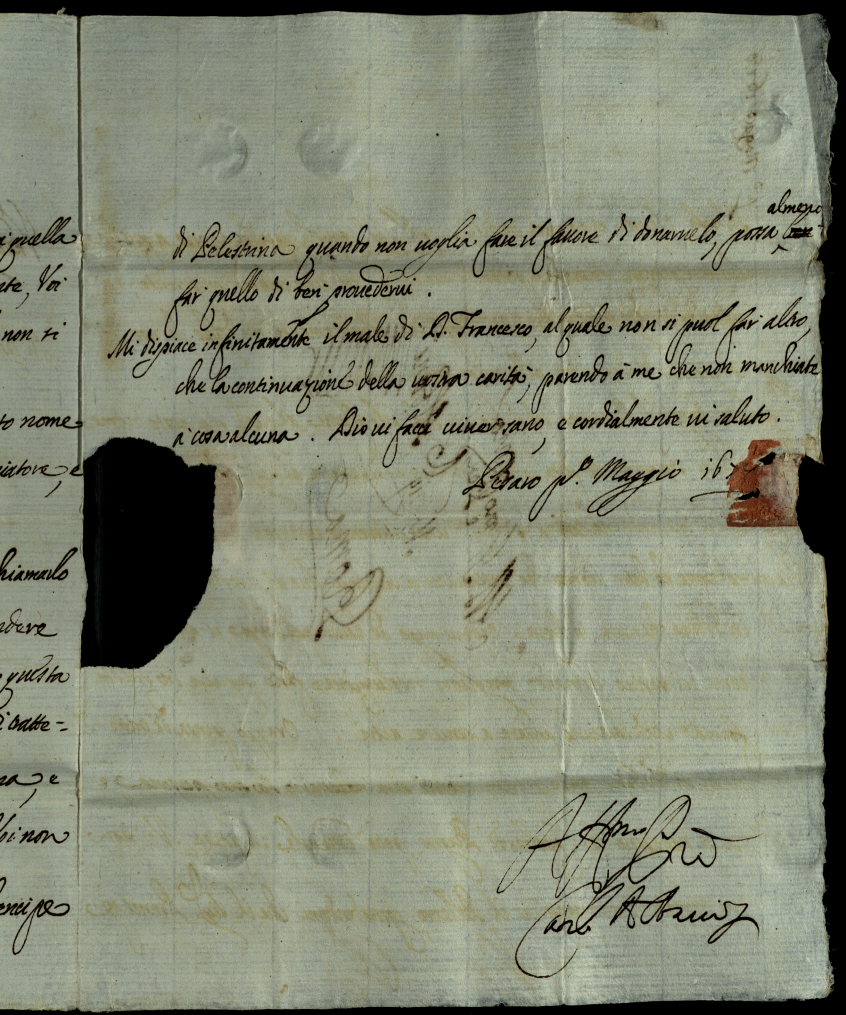 a quella
nte, Voi
non si
to nome
ciatore, e
hiamarlo
ndere
questa
i batte=
na, e
Voi non
encipe
di Pelestrina quando non voglia fare il favore di donarvelo, possa almeno
far quello di ben provedervi.
Mi dispiace infinitamente il male di D. Francesco, al quale non si puol far altro,
che la continuazione della vostra carità, parendo à me che non manchiate
à cosa alcuna. Dio vi facci viver sano, e cordialmente vi saluto.
Pesaro p.º Maggio 16
Affmo
Carlo